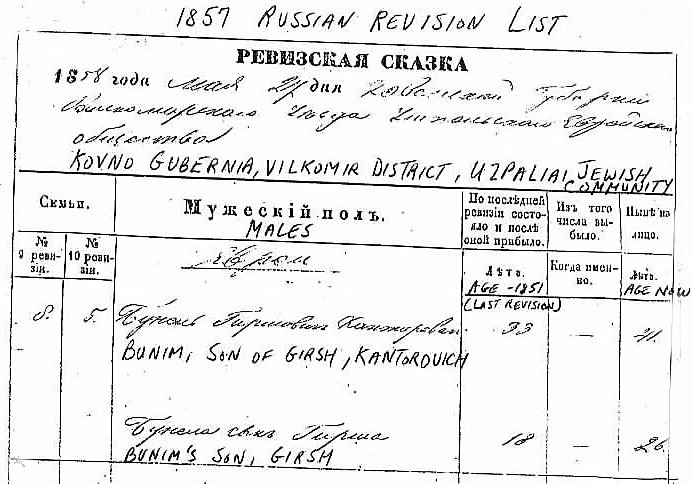 1857 RUSSIAN REVISION LIST
РЕВИЗСКАЯ СКАЗКА
1858 года мая 27 дня Ковенской Губернии
Вилкомирского Уезда Ушпольского Еврейского
общества
KOVNO GUBERNIA, VILKOMIR DISTRICT, UZPALIAI, JEWISH COMMUNITY
Семьи.
Мужескій полъ.
MALES
По последней ревизіи состояло и послѣ оной прибыло.
Изъ того числа выбыло.
Нынѣ на лицо.
№ 9 ревизіи.
№ 10 ревизіи.
Евреи
Лѣта.
AGE -1851
(LAST REVISION)
Когда именно.
Лѣта.
AGE NOW
8. 5. Бунель Гиршович Канторович 33 — 41.
BUNIM, SON OF GIRSH, KANTOROVICH
Бунеля сын Гирша 18 — 26.
BUNIM'S SON, GIRSH